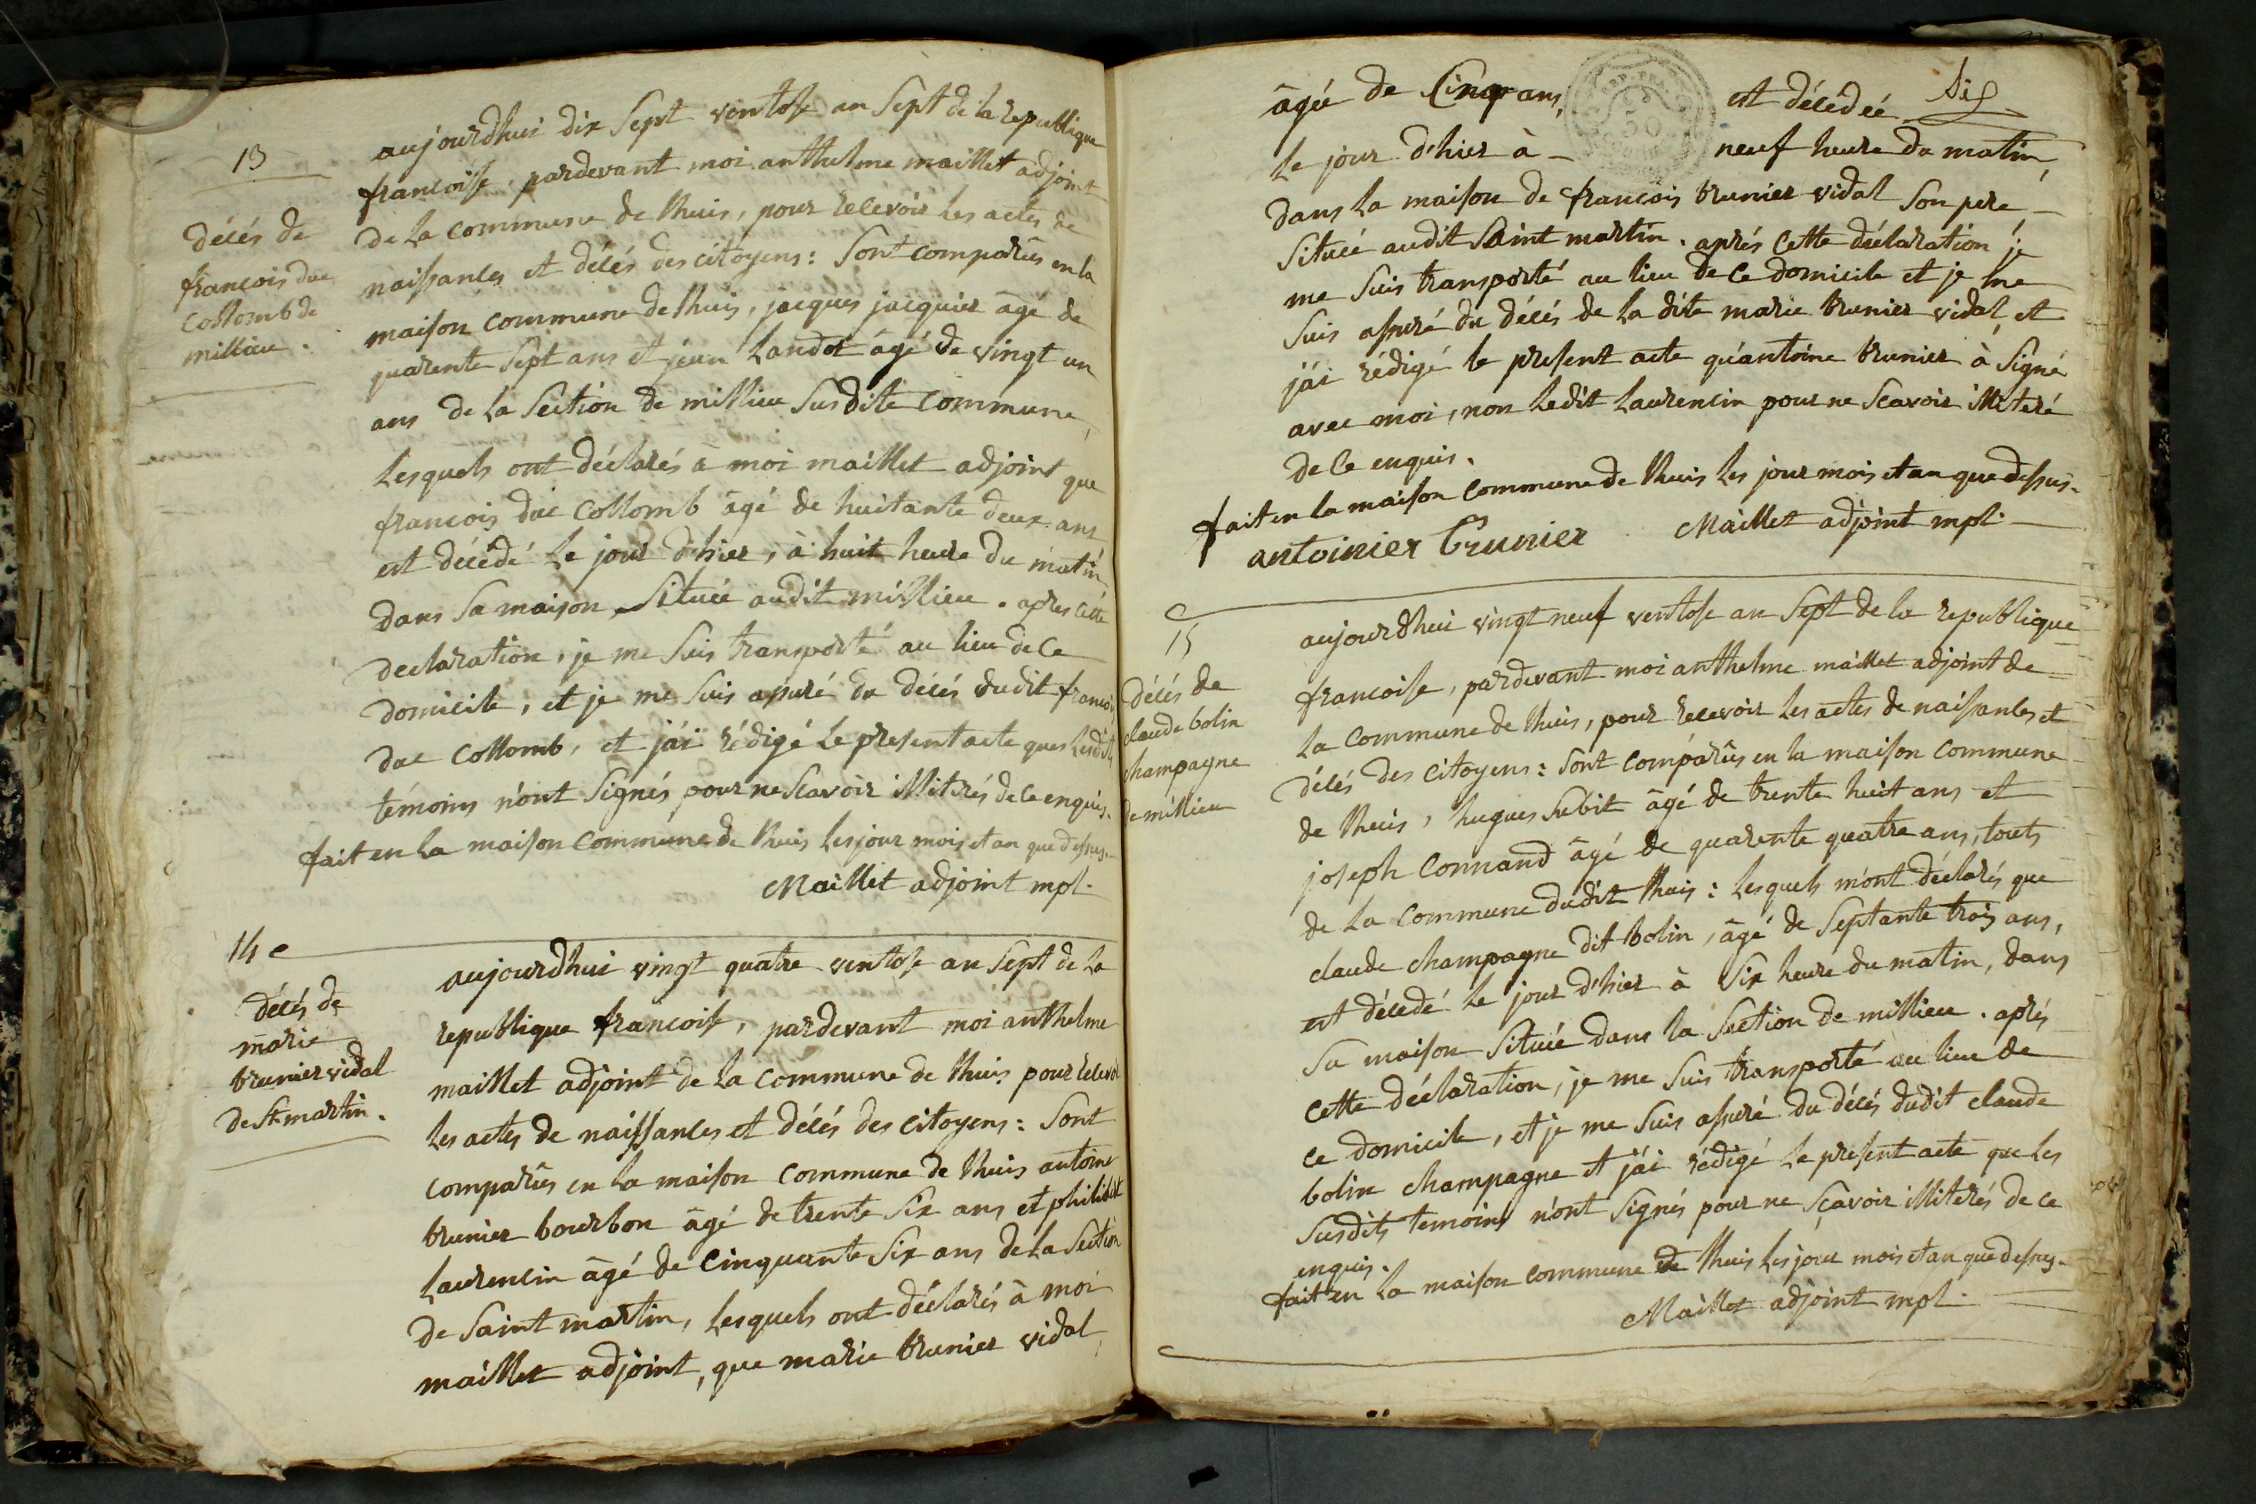 13
décés de
francois duc
Collomb de
millieu.
aujourdhui dix Sept ventose an Sept de la republique
francoise, pardevant moi anthelme maillet adjoint
de la commune de thuis, pour recevoir les actes de
naissances et décés des citoyens: Sont comparûs en la
maison commune de thuis, jacques jacquier âgé de
quarente Sept ans et jean Landot âgé de vingt un
ans de la Section de millieu Susdite commune,
Lesquels ont déclarés à moi maillet adjoint que
francois duc Collomb âgé de huitante deux ans
est décédé le jour d'hier, à huit heure du matin
dans Sa maison Située audit millieu. apres cette
declaration, je me Suis transporté au lieu de ce
domicile, et je me Suis assuré du décés dudit francois
duc Collomb, et j'ai rédigé le present acte ques lesdits
témoins n'ont Signés pour ne Scavoir illitérés de ce enquis.
fait en la maison commune de thuis les jour mois et an que dessus.
Maillet adjoint mpl.
14
décés de
marie
brunier vidal
de St. martin.
aujourdhui vingt quatre ventose an Sept de la
republique francoise, pardevant moi anthelme
maillet adjoint de la commune de thuis pour recevoir
les actes de naissances et décés des citoyens: Sont
comparûs en la maison commune de thuis antoine
brunier bourbon âgé de trente Six ans et philibert
Laurencin âgé de cinquante Six ans de la Section
de Saint martin, Lesquels ont déclarés à moi
maillet adjoint, que marie brunier vidal
âgée de Cinq ans, est décédeé
le jour d'hier à neuf heure du matin,
dans la maison de francois brunier vidal Son pere
Située audit Saint martin. aprés cette déclaration je
me Suis transporté au lieu de ce domicile et je me
Suis assuré du décés de la dite marie brunier vidal et
j'ai rédigé le present acte qu'antoine brunier à Signé
avec moi, non ledit Laurencin pour ne Scavoir illiteré
de ce enquis.
fait en la maison commune de thuis les jour mois et an que dessus.
antoinier brunier Maillet adjoint mpl.
15
décés de
claude bolin
champagne
de millieu
aujourdhui vingt neuf ventose an Sept de la republique
francoise, pardevant moi anthelme maillet adjoint de
la commune de thuis, pour recevoir les actes de naissances et
décés des citoyens: Sont comparûs en la maison commune
de thuis, hugues Subit âgé de trente huit ans et
joseph Connand âgé de quarente quatre ans, touts
de la commune dudit thuis: Lesquels m'ont déclarés que
claude champagne dit bolin, âgé de Septante trois ans,
est décedé le jour d'hier à Six heure du matin, dans
Sa maison Située dans la Section de millieu. aprés
cette déclaration, je me Suis transporté au lieu de
ce domicile, et je me Suis assuré du décés dudit claude
bolin champagne et j'ai rédigé le present acte que les
Susdits temoins n'ont Signés pour ne Sçavoir illiterés de ce
enquis.
fait en la maison commune de thuis les jour mois et an que dessus.
Maillet adjoint mpl.